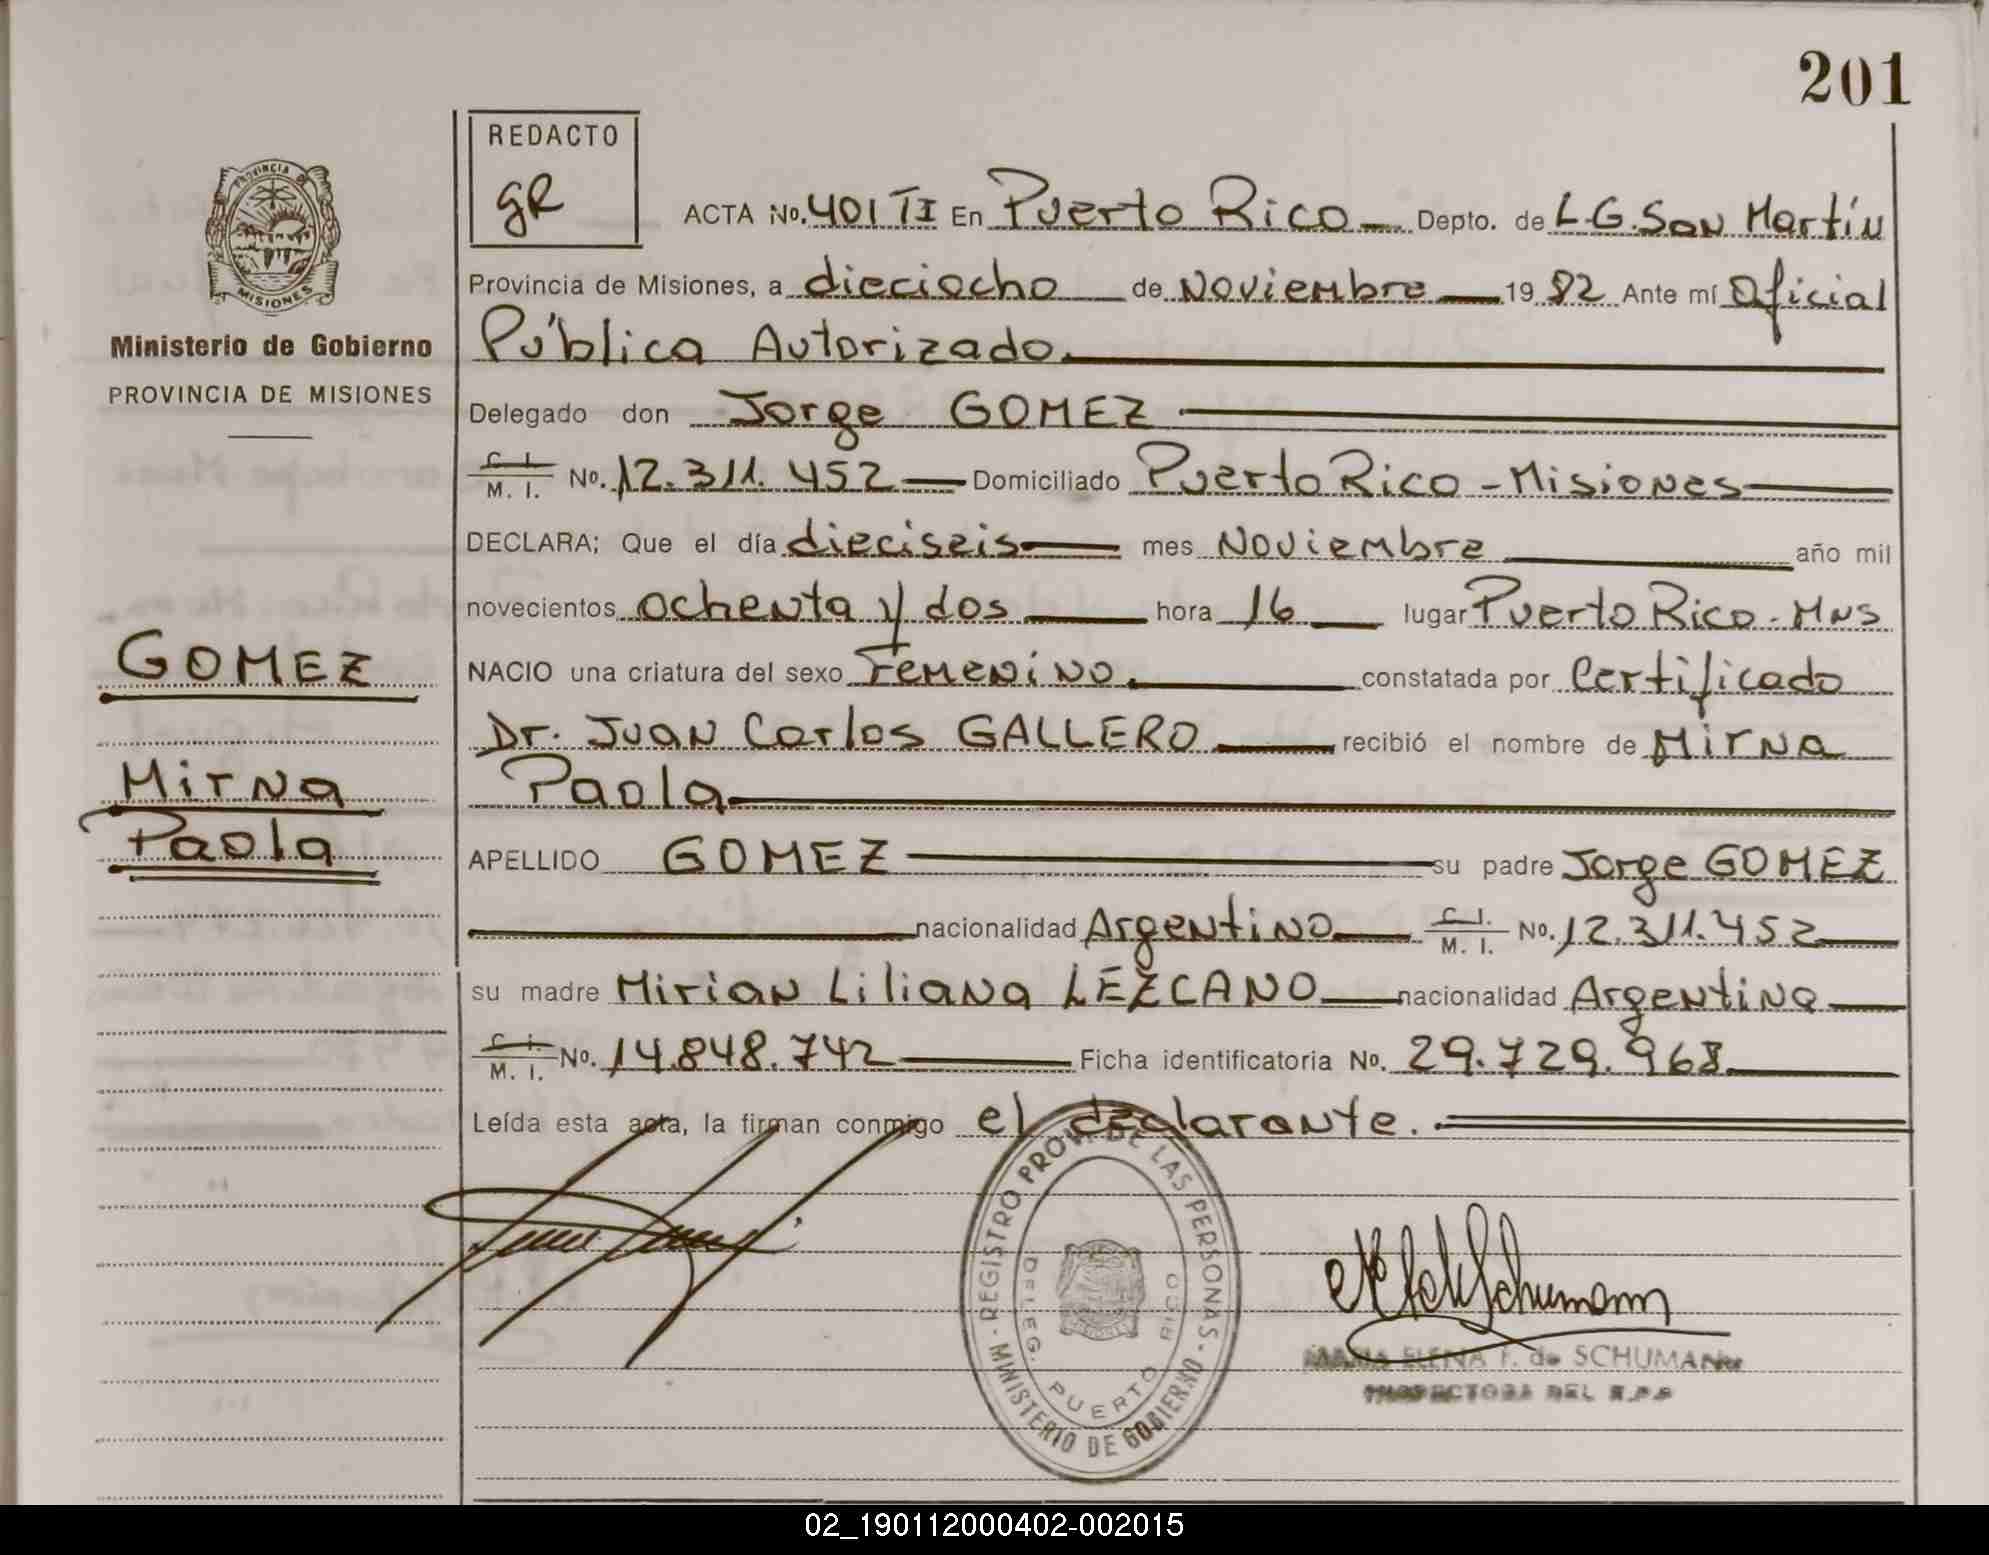 201
REDACTO
gR
PROVINCIA DE
MISIONES
Ministerio de Gobierno
PROVINCIA DE MISIONES
GOMEZ
Mirna
Paola
ACTA No. 401 TI En Puerto Rico Depto. de L.G. San Martín
Provincia de Misiones, a dieciocho de Noviembre 19 82 Ante mí Oficial
Pública Autorizado.
Delegado don Jorge GOMEZ
C. I. M. I. No. 12.311.452 Domiciliado Puerto Rico - Misiones
DECLARA; Que el día dieciseis mes Noviembre año mil
novecientos ochenta y dos hora 16 lugar Puerto Rico - Mns
NACIO una criatura del sexo Femenino. constatada por Certificado
Dr. Juan Carlos GALLERO recibió el nombre de Mirna
Paola
APELLIDO GOMEZ su padre Jorge GOMEZ
nacionalidad Argentino C. I. M. I. No. 12.311.452
su madre Mirian Liliana LEZCANO nacionalidad Argentina
C. I. M. I. No. 14.848.742 Ficha identificatoria No. 29.729.968
Leída esta acta, la firman conmigo el declarante.
REGISTRO PROV. DE LAS PERSONAS - MINISTERIO DE GOBIERNO -
DELEG. PUERTO RICO
Schumann
MARIA ELENA F. de SCHUMANN
INSPECTORA DEL R.P.P
02_190112000402-002015